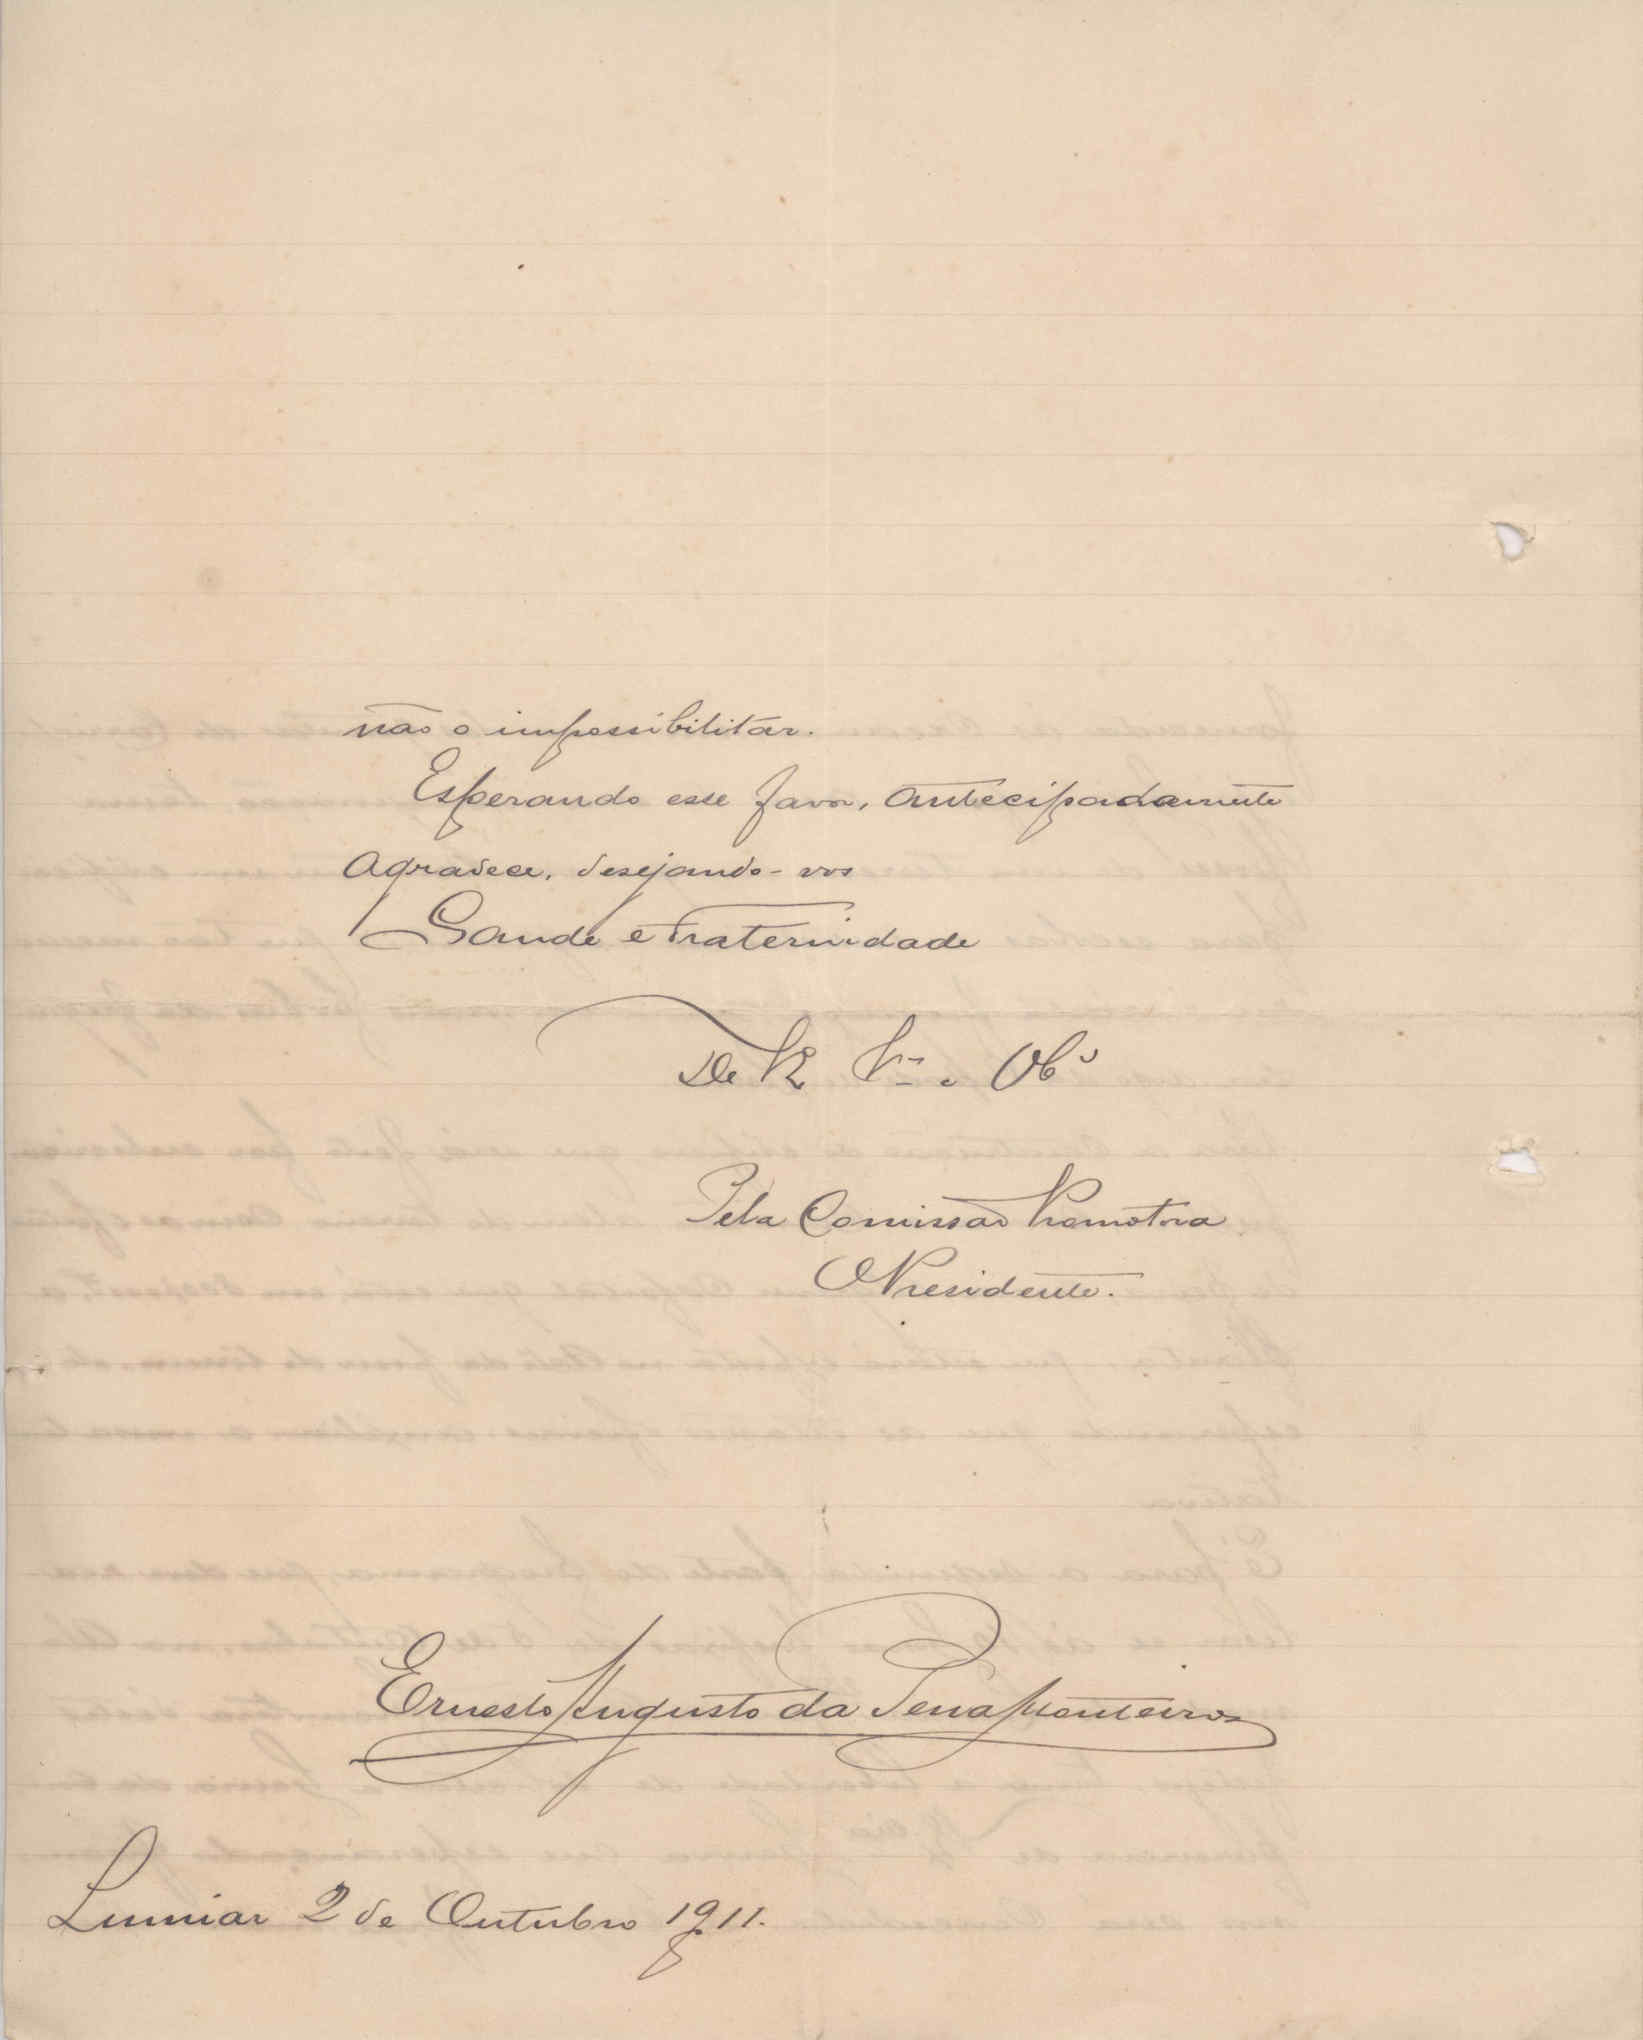 não o impossibilitar.
Esperando esse favor, antecipadamente
agradece, desejando-vos
Saude e Fraternidade
De V. E
Pela Comissão Promotora
O Presidente.
Ernesto Augusto da Pena Monteiro
Lumiar 2 de Outubro 1911.